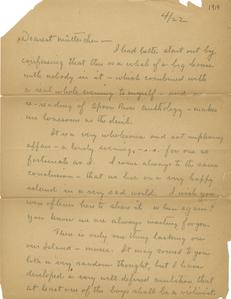 1919
4/22
Dearest Mütterchen -
I had better start out by
confessing that this is a whale of a big house
with nobody in it - which combined with
a real whole evening to myself - and a
re-reading of Spoon River Anthology - makes
me lonesome as the devil.
It is a very wholesome and not unpleasing
affair - a lonely evening, .... for one as
fortunate as I. I come always to the same
conclusion - that we live on a very happy
island in a very sad world. I wish you
were here to share it when again?
You know we are always waiting for you.
There is only one thing lacking on
our island - music. It may sound to you
like a very random thought, but I have
developed a very well defined ambition that
at least one of the boys shall be a violinist.